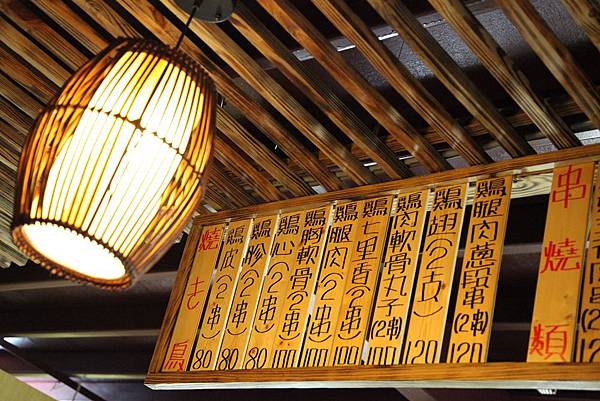 燒き鳥
鷄皮(2串)80
鷄胗(2串)80
鷄心(2串)80
鷄胸軟骨(2串)100
鷄腿肉(2串)100
鷄七里香(2串)100
鷄肉軟骨丸子(2串)100
鷄翅(2支)120
鷄腿肉蔥段串(2串)120
串燒類